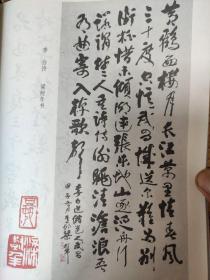 黄鹤西楼月长江万里情春风
三十度空忆武昌城送尔难为别
衔杯惜未倾湖连张乐地山逐泛舟行
诺谓楚人重诗传谢朓清沧浪吾
有曲寄入棹歌声 李白送储邕之武昌
李白诗
梁树年书